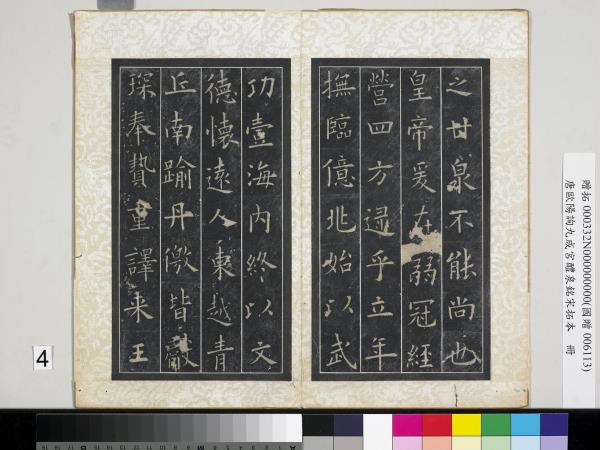 之甘泉不能尚也
皇帝爰在弱冠經
營四方逮乎立年
撫臨億兆始以武
功壹海内終以文
德懷遠人東越青
丘南踰丹徼皆獻
琛奉贄重譯来王
贈拓 000332N000000000(國贈 006113)
唐歐陽詢九成宮醴泉銘宋拓本 冊
4